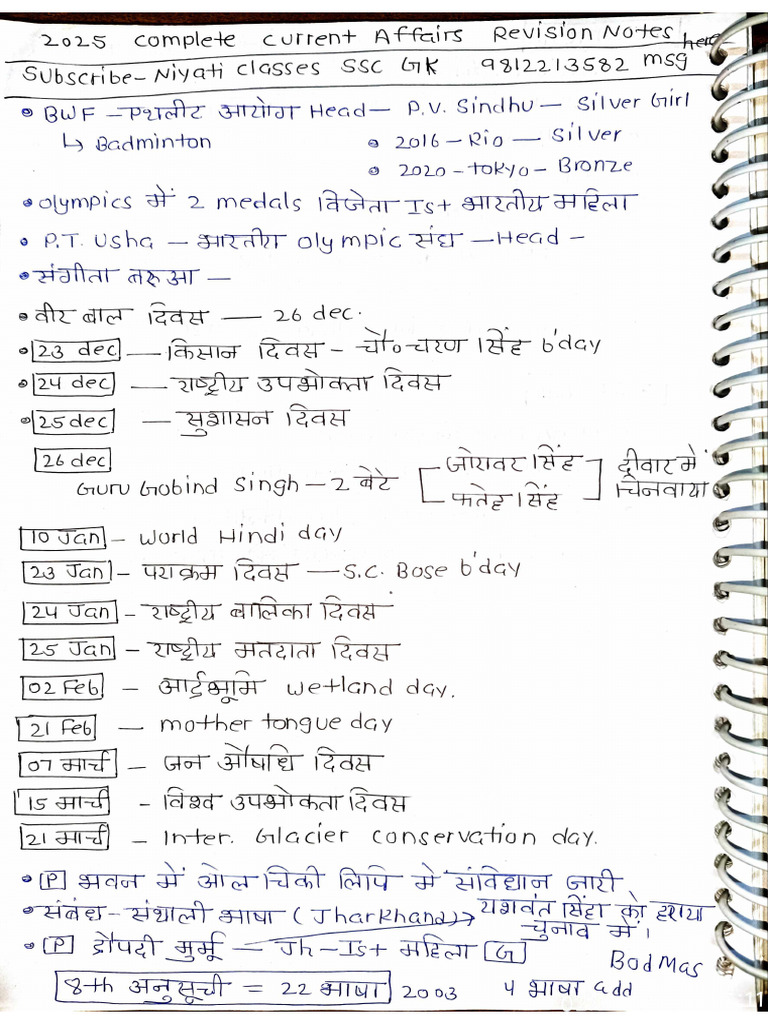 2025 Complete Current Affairs Revision Notes here
Subscribe - Niyati Classes SSC GK 9812213582 msg
• BWF - एथलीट आयोग Head - P.V. Sindhu - Silver Girl
↳ Badminton • 2016 - Rio - Silver
• 2020 - Tokyo - Bronze
• Olympics में 2 medals विजेता Ist भारतीय महिला
• P.T. Usha - भारतीय Olympic संघ - Head -
• संगीता बरुआ -
• वीर बाल दिवस - 26 dec.
• 23 dec - किसान दिवस - चौ० चरण सिंह b'day
• 24 dec - राष्ट्रीय उपभोक्ता दिवस
• 25 dec - सुशासन दिवस
26 dec
Guru Gobind Singh - 2 बेटे [जोरावर सिंह फतेह सिंह] दीवार में चिनवाया
10 Jan - World Hindi day
23 Jan - पराक्रम दिवस - S.C. Bose b'day
24 Jan - राष्ट्रीय बालिका दिवस
25 Jan - राष्ट्रीय मतदाता दिवस
02 Feb - आर्द्रभूमि wetland day.
21 Feb - mother tongue day
07 मार्च - जन औषधि दिवस
15 मार्च - विश्व उपभोक्ता दिवस
21 मार्च - Inter. Glacier conservation day.
• P भवन में ओल चिकी लिपि मे संविधान जारी
• संबंध - संथाली भाषा (Jharkhand) → यशवंत सिंहा को हराया चुनाव में।
• P द्रौपदी मुर्मू - Jh - Ist महिला G
BodMas
8th अनुसूची = 22 भाषा 2003 4 भाषा add
11